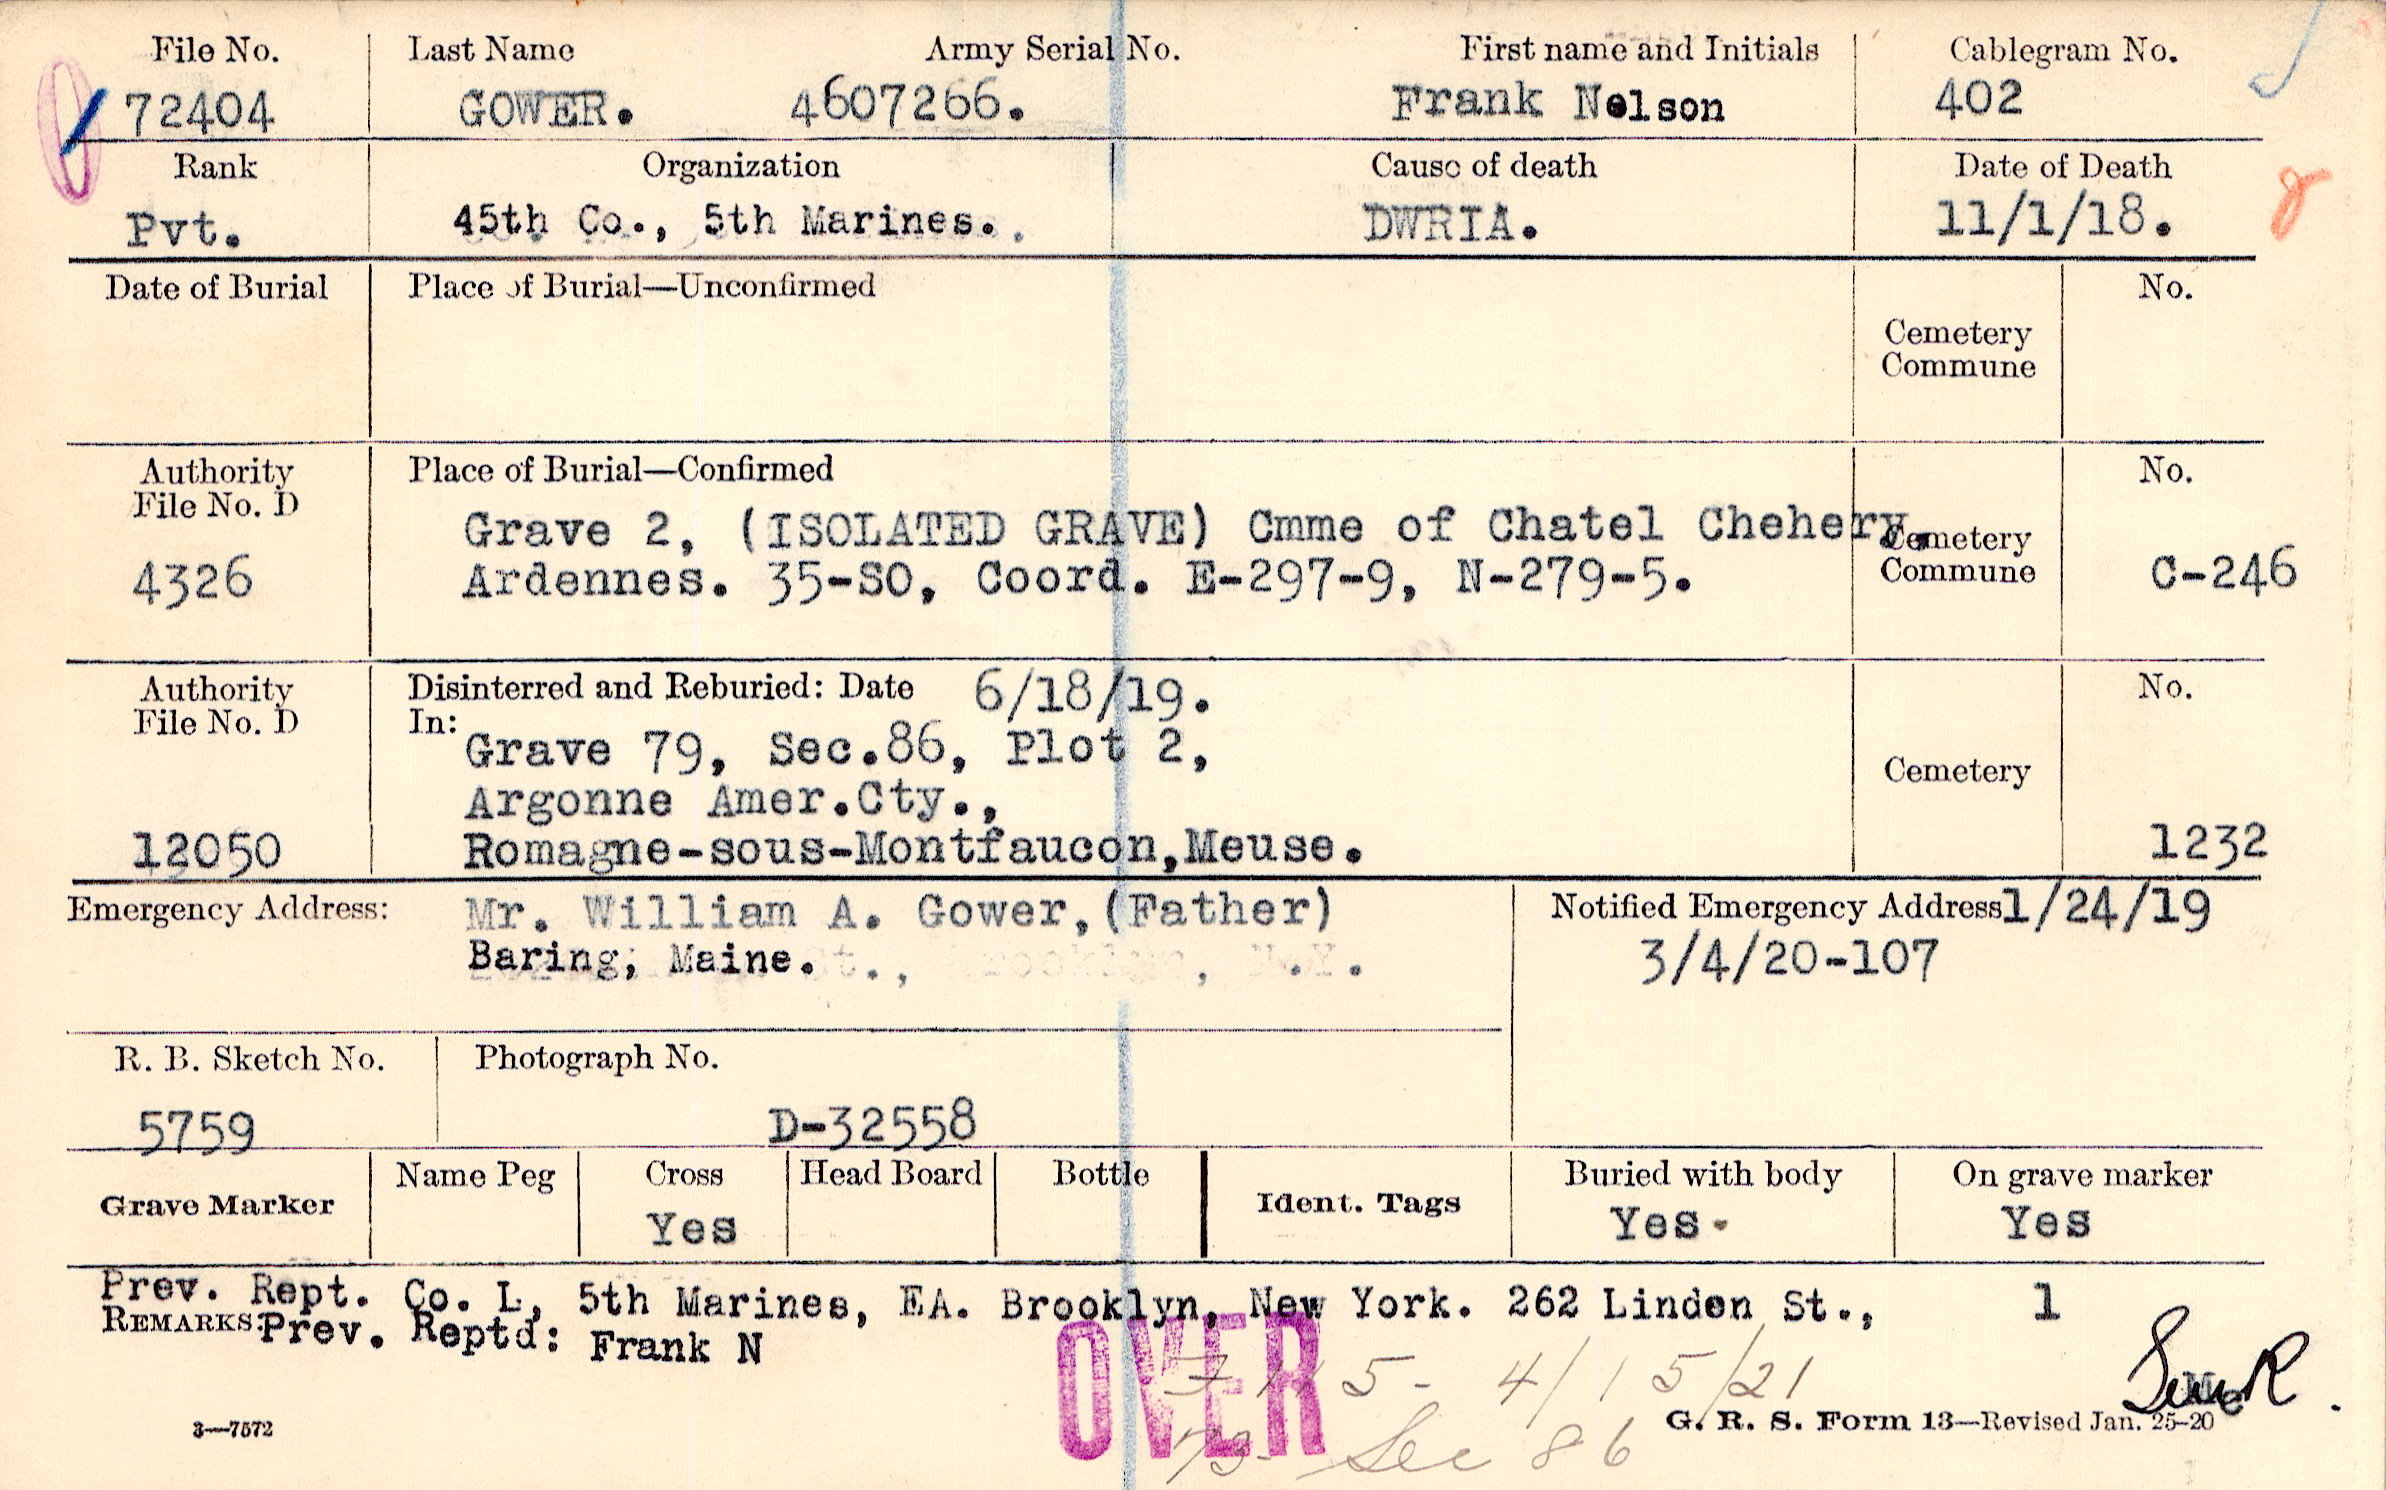 File No. Last Name Army Serial No. First name and Initials Cablegram No.
72404 GOWER. 4607266. Frank Nelson 402
Rank Organization Cause of death Date of Death
Pvt. 45th Co., 5th Marines. DWRIA. 11/1/18.
Date of Burial Place of Burial—Unconfirmed No.
Cemetery
Commune
Authority Place of Burial—Confirmed No.
File No. D
Grave 2, (ISOLATED GRAVE) Cmme of Chatel Chehery,
Cemetery
4326 Ardennes. 35-SO, Coord. E-297-9, N-279-5. Commune C-246
Authority Disinterred and Reburied: Date 6/18/19. No.
File No. D In:
Grave 79, Sec.86, Plot 2,
Cemetery
Argonne Amer.Cty.,
12050 Romagne-sous-Montfaucon,Meuse. 1232
Emergency Address: Mr. William A. Gower,(Father) Notified Emergency Address 1/24/19
Baring, Maine. 3/4/20-107
R. B. Sketch No. Photograph No.
5759 D-32558
Grave Marker Name Peg Cross Head Board Bottle Ident. Tags Buried with body On grave marker
Yes Yes. Yes
Prev. Rept. Co. L, 5th Marines, EA. Brooklyn, New York. 262 Linden St., 1
REMARKS: Prev. Reptd: Frank N
OVER
5- 4/15/21
Sec 86
3—7572 G. R. S. Form 13—Revised Jan. 25-20